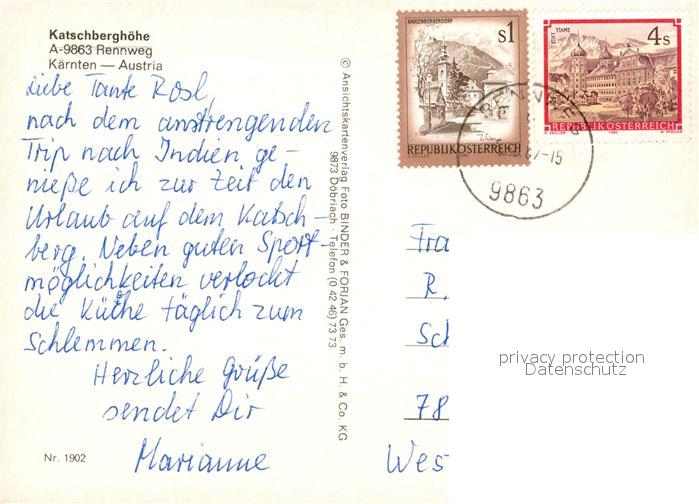 Katschberghöhe
A-9863 Rennweg
Kärnten — Austria
Liebe Tante Rosl,
nach dem anstrengenden
Trip nach Indien ge-
nieße ich zur Zeit den
Urlaub auf dem Katsch-
berg. Neben guten Sport-
möglichkeiten verlockt
die Küche täglich zum
Schlemmen.
Herzliche Grüße
sendet Dir
Marianne
Nr. 1902
© Ansichtskartenverlag Foto BINDER & FORJAN Ges. m. b. H. & Co. KG
9873 Döbriach · Telefon (0 42 46) 73 73
KAHLENBERGERDORF
s1
REPUBLIK ÖSTERREICH
STIFT STAMS
4s
REPUBLIK ÖSTERREICH
RENNWEG
-15
9863
Fra
R.
Sch
78
Wes
privacy protection
Datenschutz